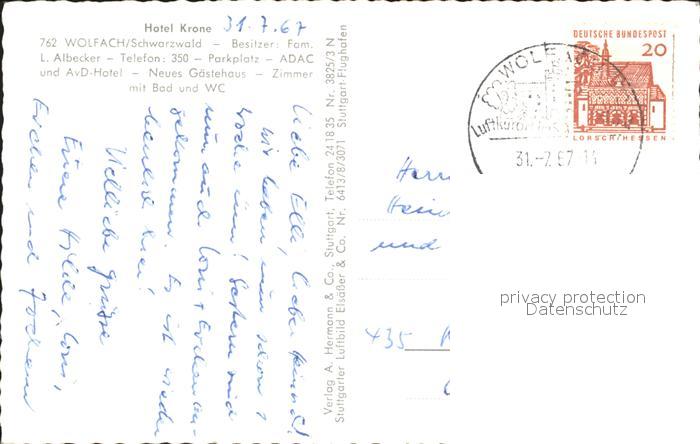 Hotel Krone
31.7.67
762 WOLFACH/Schwarzwald – Besitzer: Fam.
L. Albecker – Telefon: 350 – Parkplatz – ADAC
und AvD-Hotel – Neues Gästehaus – Zimmer
mit Bad und WC
Liebe Elli, lieber Heinz!
Wir haben nun schon 1
Woche um! Gestern sind
nun auch
gekommen. Es ist wieder
herrlich hier!
Viel liebe Grüsse
Eure
und Jochem
Verlag A. Hermann & Co., Stuttgart, Telefon 241835 Nr. 3825/3 N
Stuttgarter Luftbild Elsäßer & Co. Nr. 6413/8/3071 Stuttgart-Flughafen
DEUTSCHE BUNDESPOST
20
LORSCH/HESSEN
WOLF
Luftkurort
31.-7.67
Herrn
Hein
und
435
privacy protection
Datenschutz